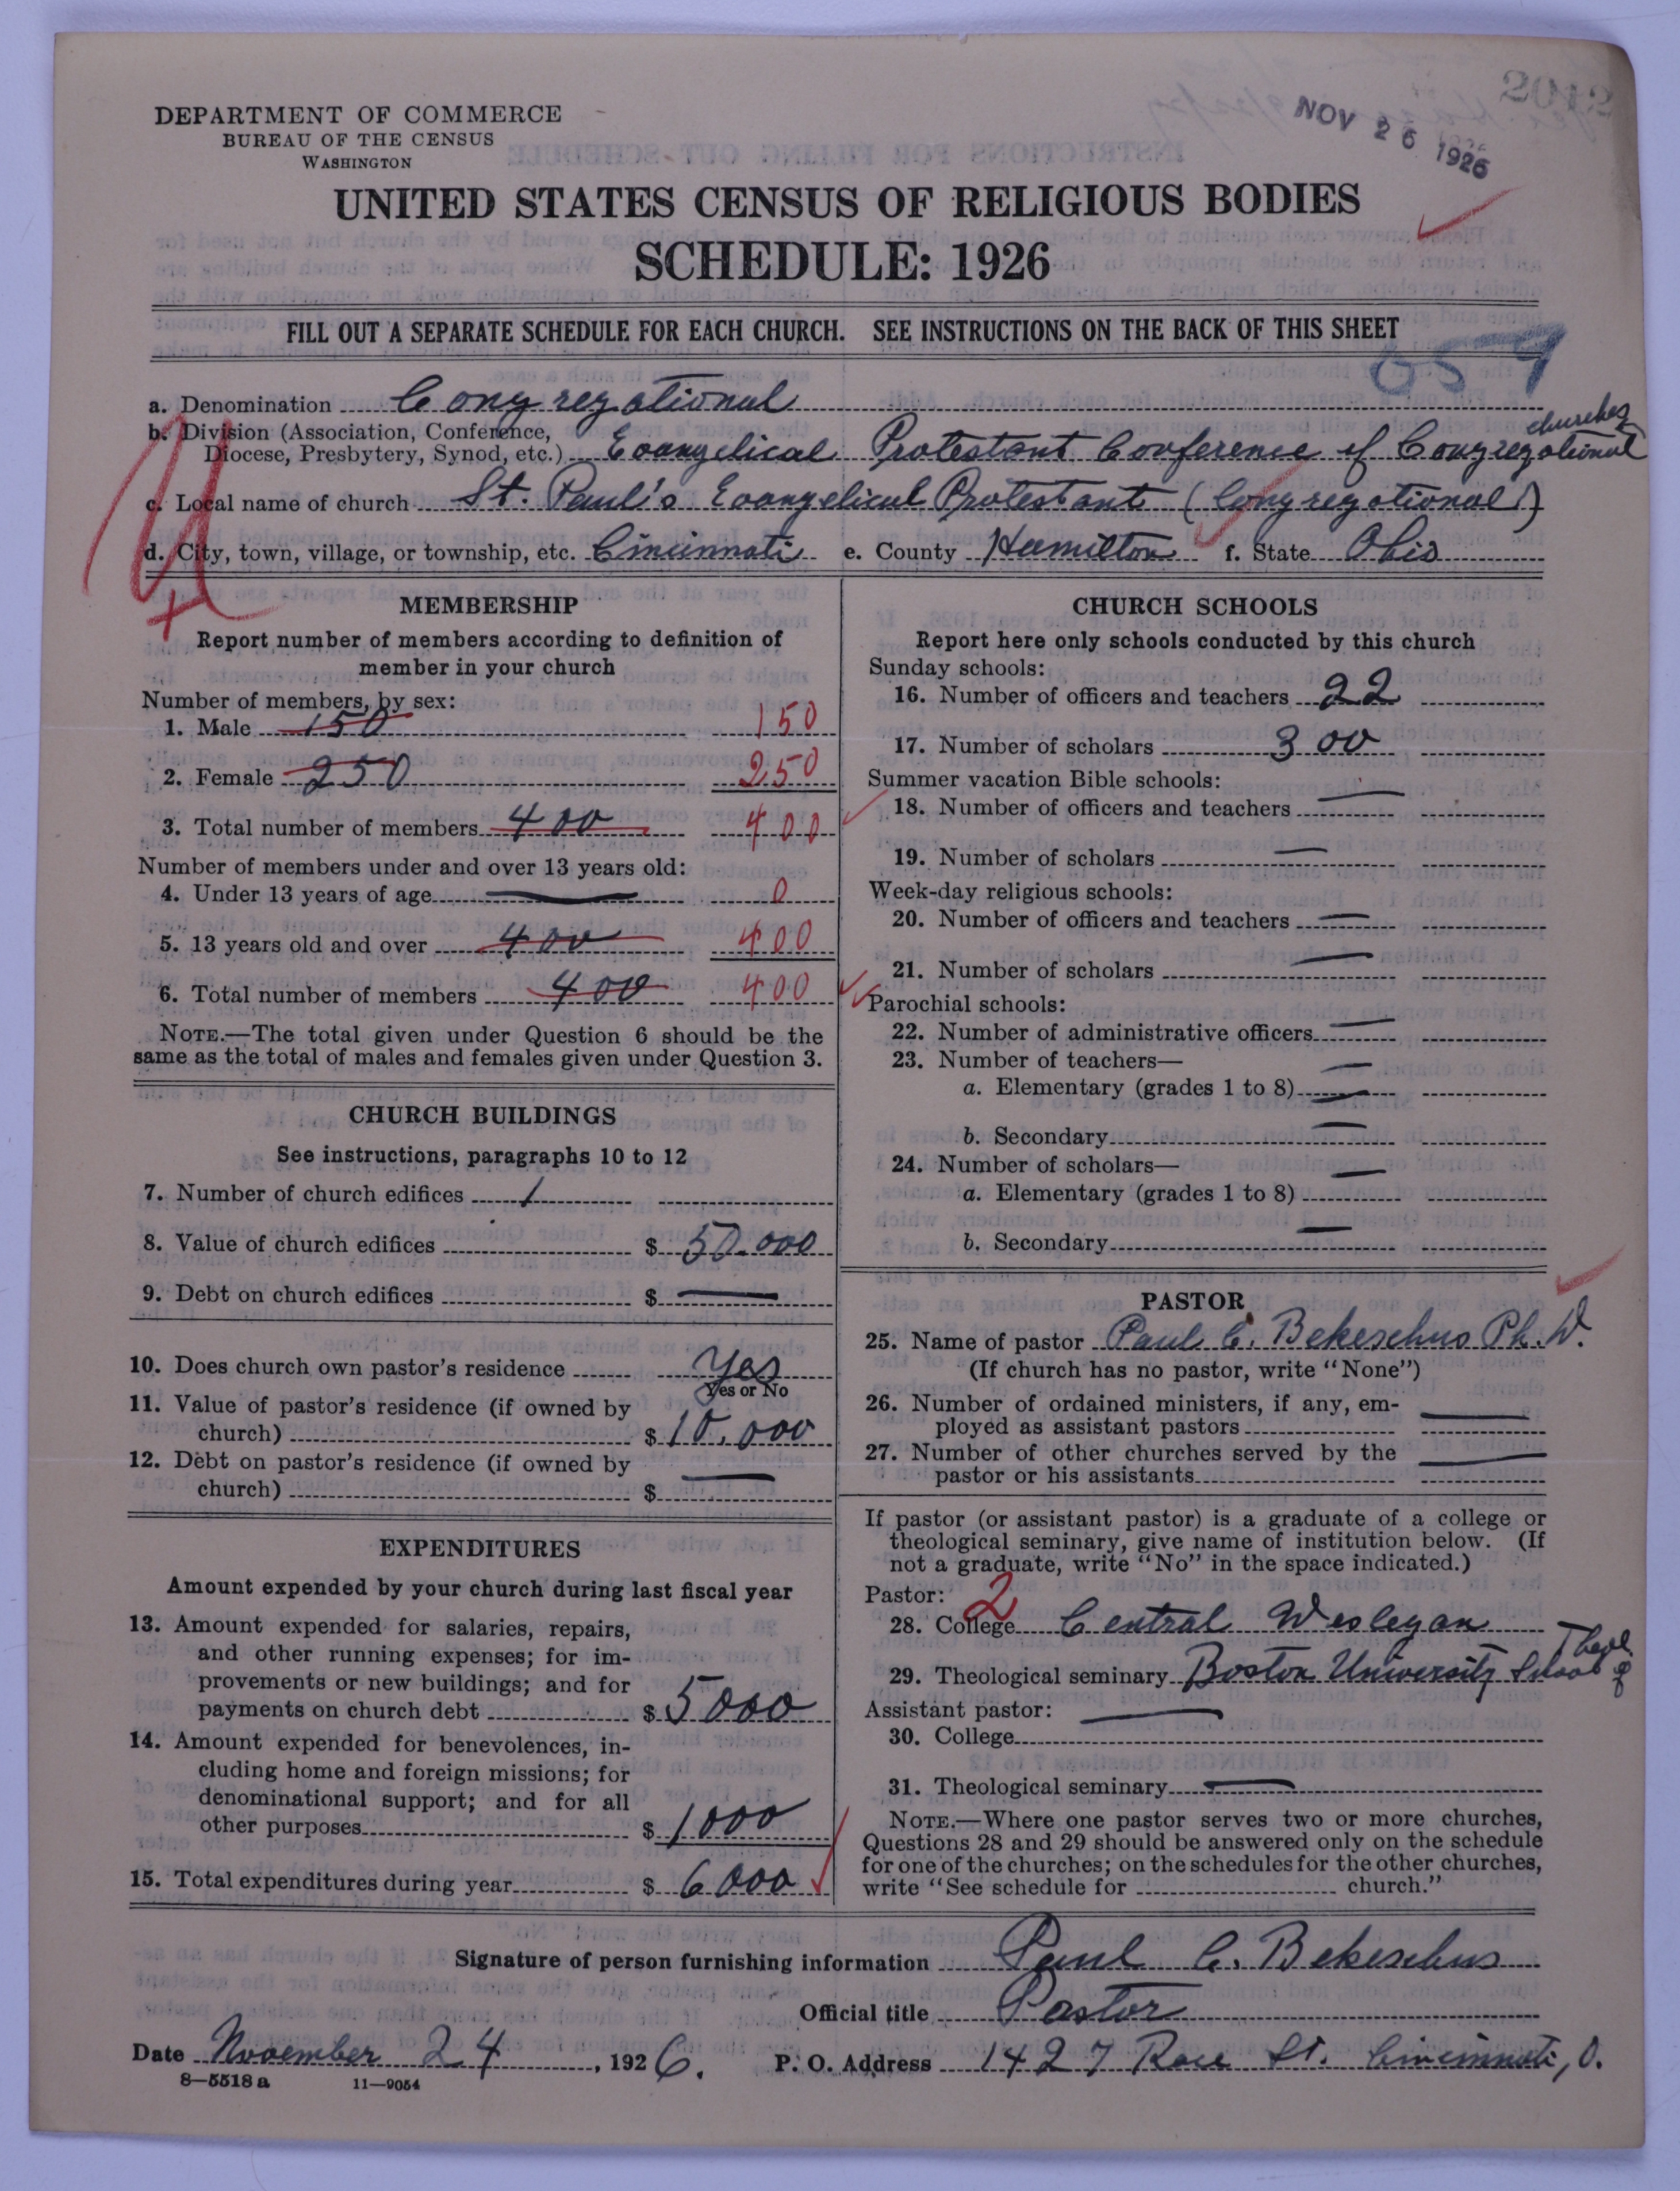 DEPARTMENT OF COMMERCE
BUREAU OF THE CENSUS
WASHINGTON
NOV 26 1926
UNITED STATES CENSUS OF RELIGIOUS BODIES
SCHEDULE: 1926
FILL OUT A SEPARATE SCHEDULE FOR EACH CHURCH. SEE INSTRUCTIONS ON THE BACK OF THIS SHEET
057
a. Denomination Congregational
b. Division (Association, Conference,
Diocese, Presbytery, Synod, etc.) Evangelical Protestant Conference of Congregational churches
c. Local name of church St. Paul's Evangelical Protestant (Congregational)
d. City, town, village, or township, etc. Cincinnati e. County Hamilton f. State Ohio
MEMBERSHIP
Report number of members according to definition of
member in your church
Number of members, by sex:
1. Male 150 150
2. Female 250 250
3. Total number of members 400 400
Number of members under and over 13 years old:
4. Under 13 years of age — 0
5. 13 years old and over 400 400
6. Total number of members 400 400
NOTE.—The total given under Question 6 should be the
same as the total of males and females given under Question 3.
CHURCH BUILDINGS
See instructions, paragraphs 10 to 12
7. Number of church edifices 1
8. Value of church edifices $ 50.000
9. Debt on church edifices $ —
10. Does church own pastor's residence Yes
Yes or No
11. Value of pastor's residence (if owned by
church) $ 10.000
12. Debt on pastor's residence (if owned by
church) $ —
EXPENDITURES
Amount expended by your church during last fiscal year
13. Amount expended for salaries, repairs,
and other running expenses; for im-
provements or new buildings; and for
payments on church debt $ 5000
14. Amount expended for benevolences, in-
cluding home and foreign missions; for
denominational support; and for all
other purposes $ 1000
15. Total expenditures during year $ 6000
CHURCH SCHOOLS
Report here only schools conducted by this church
Sunday schools:
16. Number of officers and teachers 22
17. Number of scholars 300
Summer vacation Bible schools:
18. Number of officers and teachers —
19. Number of scholars —
Week-day religious schools:
20. Number of officers and teachers —
21. Number of scholars —
Parochial schools:
22. Number of administrative officers —
23. Number of teachers— —
a. Elementary (grades 1 to 8) —
b. Secondary —
24. Number of scholars— —
a. Elementary (grades 1 to 8)
b. Secondary —
PASTOR
25. Name of pastor Paul C. Bekeschus Ph. D.
(If church has no pastor, write "None")
26. Number of ordained ministers, if any, em-
ployed as assistant pastors —
27. Number of other churches served by the
pastor or his assistants —
If pastor (or assistant pastor) is a graduate of a college or
theological seminary, give name of institution below. (If
not a graduate, write "No" in the space indicated.)
Pastor: 2
28. College Central Wesleyan
29. Theological seminary Boston University School of Theol
Assistant pastor: —
30. College
31. Theological seminary —
NOTE.—Where one pastor serves two or more churches,
Questions 28 and 29 should be answered only on the schedule
for one of the churches; on the schedules for the other churches,
write "See schedule for church."
Signature of person furnishing information Paul C. Bekeschus
Official title Pastor
Date November 24, 1926. P. O. Address 1427 Race St. Cincinnati, O.
8—5518 a 11—9054